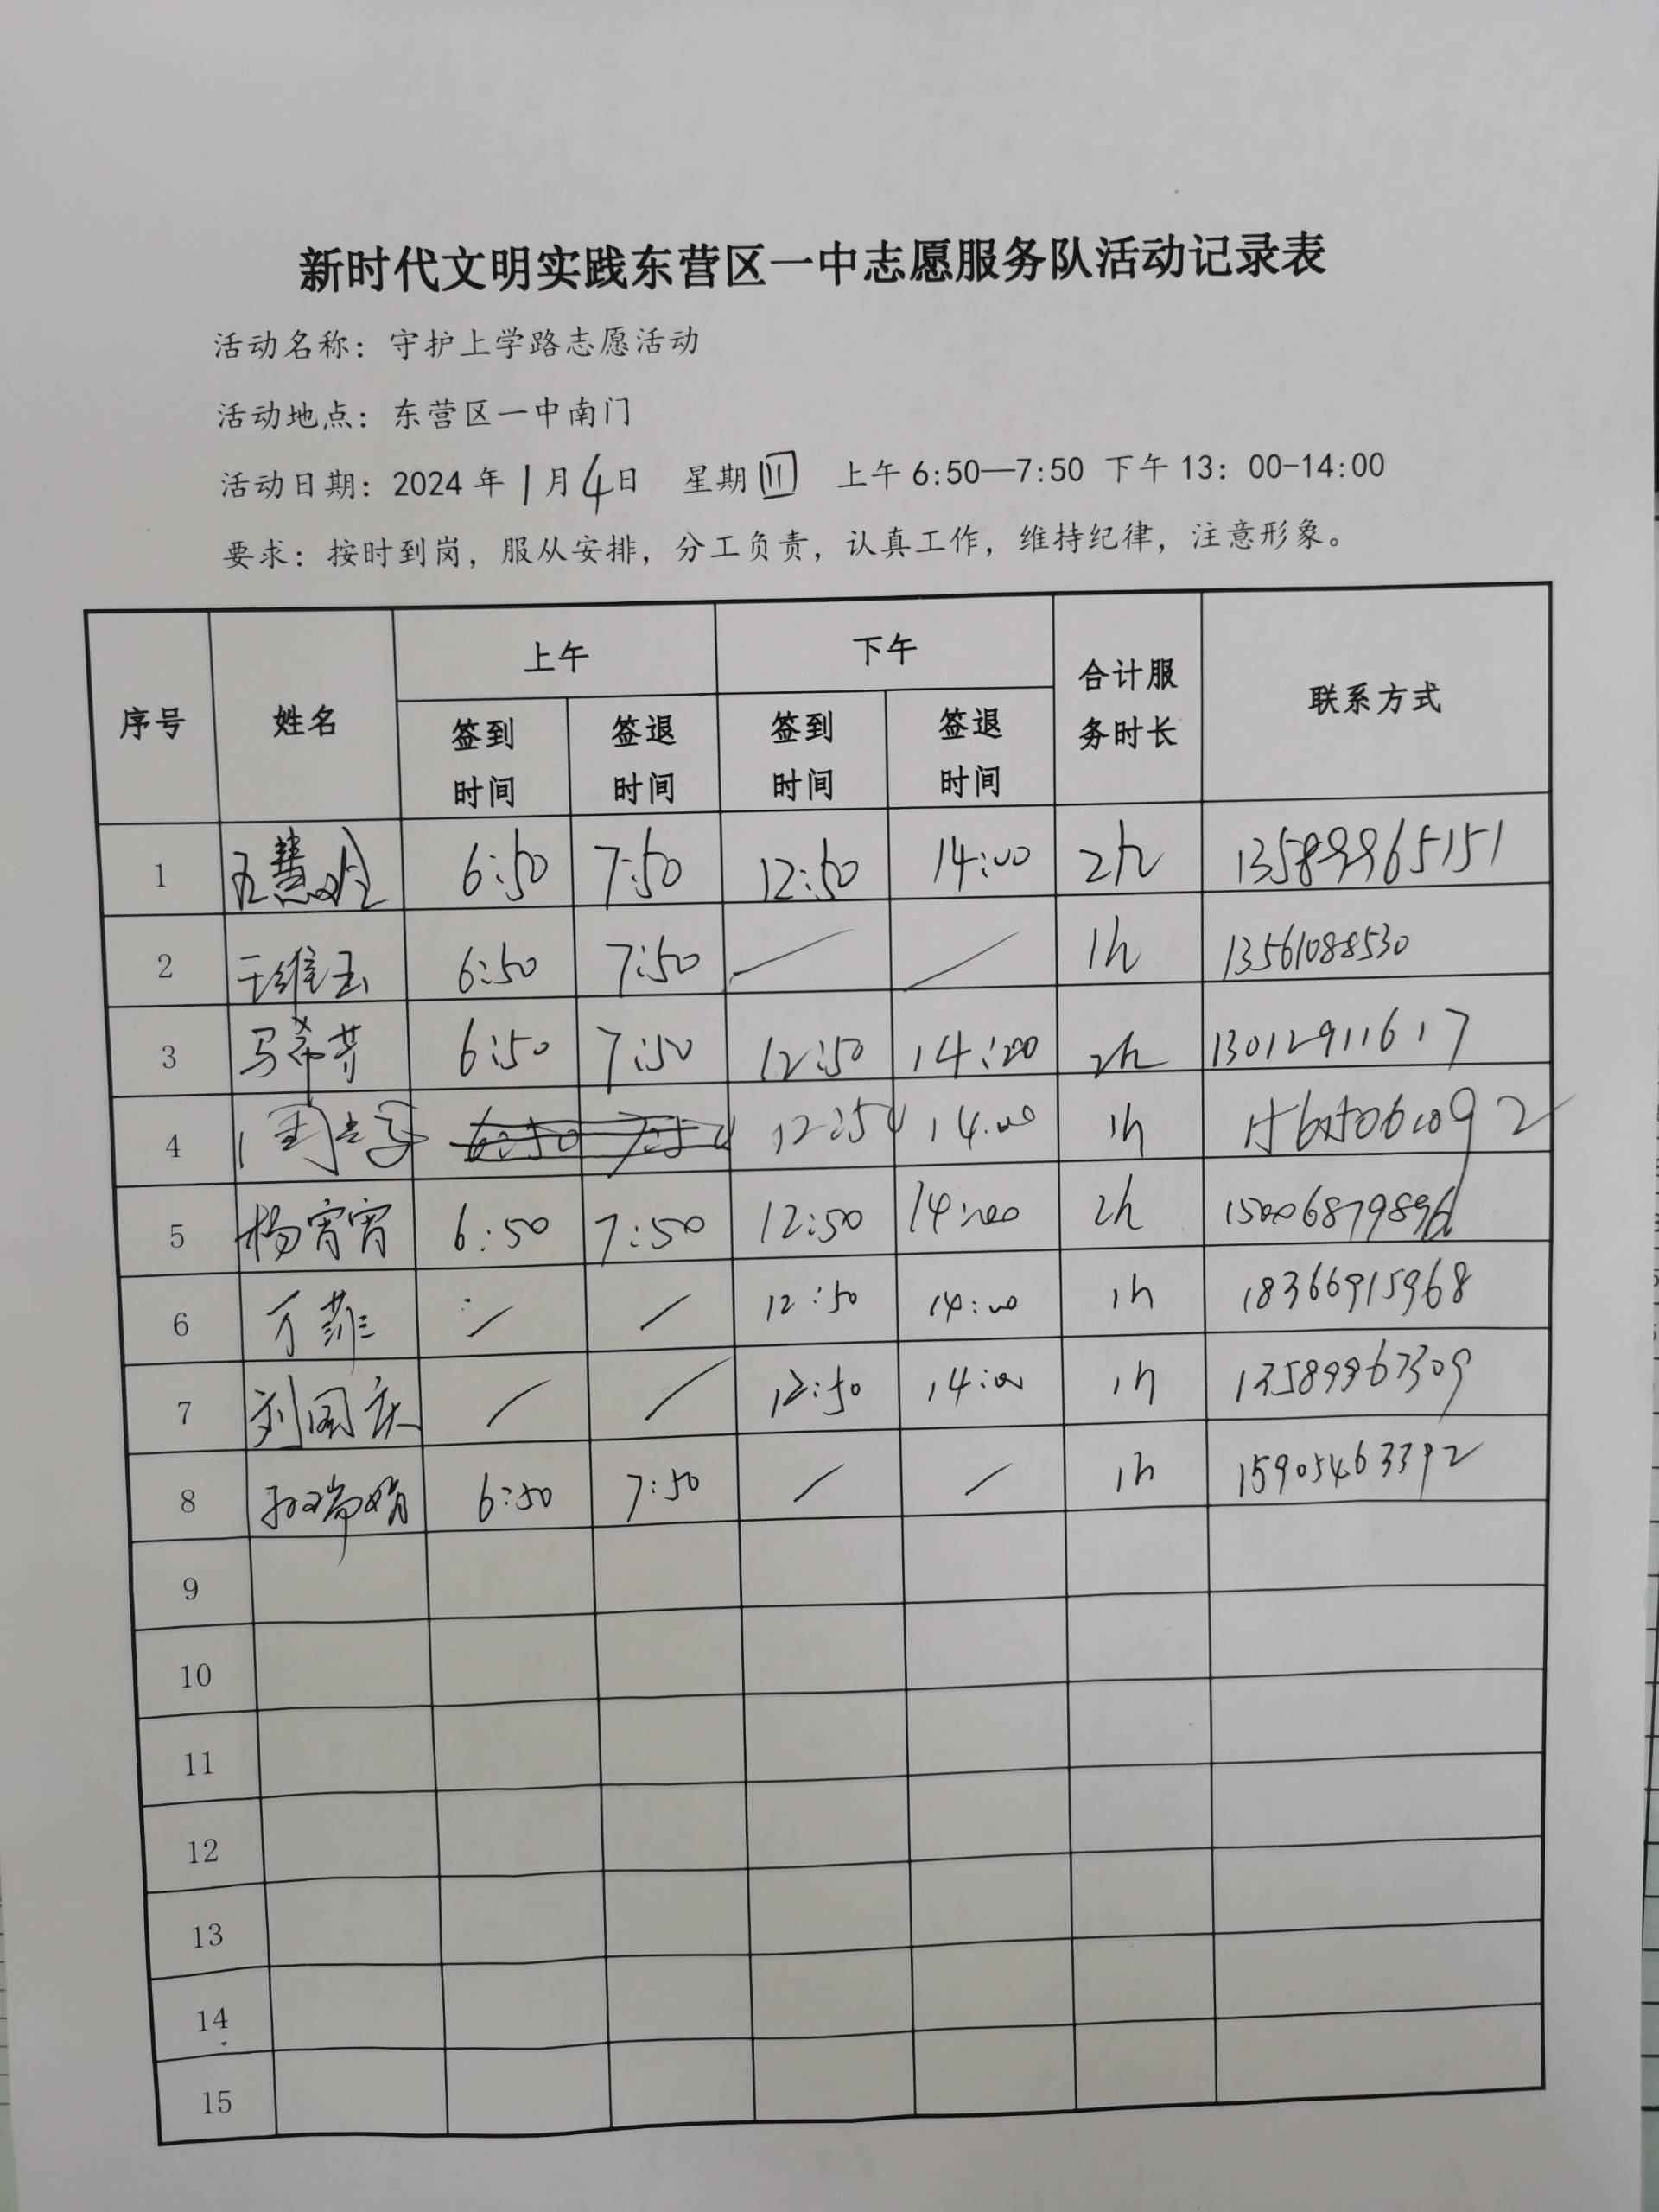 新时代文明实践东营区一中志愿服务队活动记录表
活动名称：守护上学路志愿活动
活动地点：东营区一中南门
活动日期：2024年1月4日 星期四 上午6:50—7:50 下午13：00-14:00
要求：按时到岗，服从安排，分工负责，认真工作，维持纪律，注意形象。
序号 姓名 上午 下午 合计服务时长 联系方式
签到时间 签退时间 签到时间 签退时间
1 6:50 7:50 12:50 14:00 2h 13589965151
2 于维玉 6:50 7:50 / / 1h 13561088530
3 马希芹 6:50 7:50 12:50 14:00 2h 13012911617
4 6:50 7:50 12:50 14:00 1h
5 杨宵宵 6:50 7:50 12:50 14:00 2h
6 / / 12:50 14:00 1h 18366915968
7 刘国庆 / / 12:50 14:00 1h 13589967309
8 孙瑞娟 6:50 7:50 / / 1h 15905463392
9
10
11
12
13
14
15